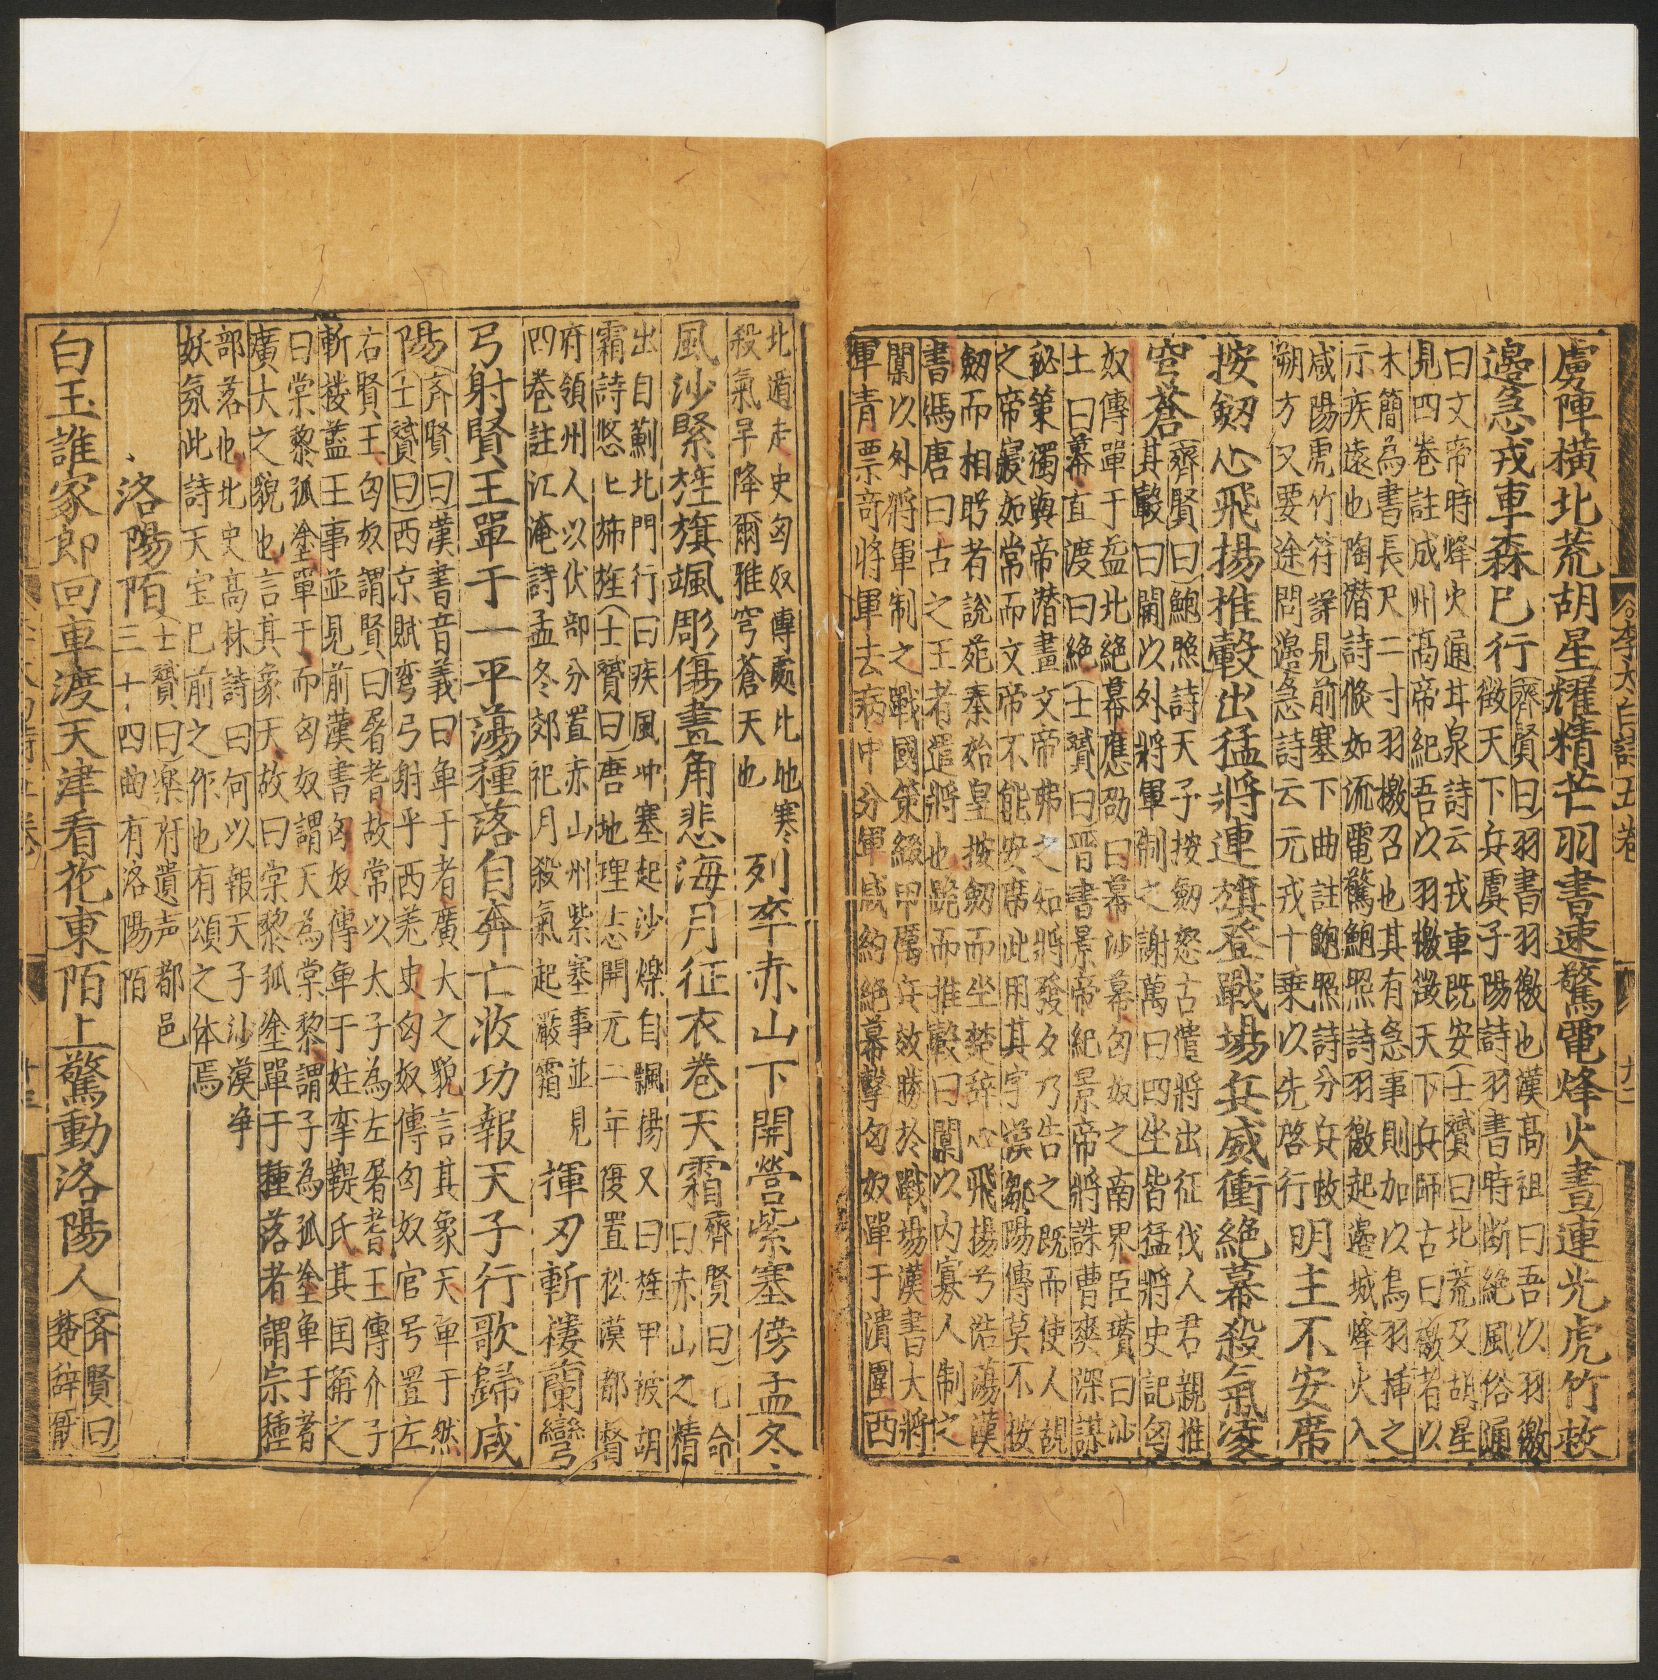 虜陣橫北荒胡星耀精芒羽書速驚電烽火晝連光虎竹救
邊急戎車森已行
齊賢曰羽書羽檄也漢高祖曰吾以羽檄
徵天下兵虞子陽詩羽書時斷絕
曰文帝時烽火通甘泉詩云戎車既安士贇曰北荒及胡星
見四卷註成州高帝紀吾以羽檄徵天下兵師古曰檄者以
木簡為書長尺二寸羽檄召也其有急事則加以鳥羽插之
示疾遠也陶潛詩倏如流電驚鮑照詩羽檄起邊城烽火入
咸陽虎竹符詳見前塞下曲註鮑照詩分兵救
朔方又要途問邊急詩云元戎十乘以先啓行
明主不安席
按劒心飛揚推轂出猛將連旗登戰場兵威衝絕幕殺氣凌
穹蒼
齊賢曰鮑照詩天子按劒怒古遣將出征伐人君親推
其轂曰閫以外將軍制之謝萬曰四坐皆猛將史記匈
奴傳單于益北絕幕應劭曰幕沙幕匈奴之南界臣瓚曰沙
土曰幕直渡曰絕士贇曰晉書景帝紀景帝將誅曹爽深謀
祕策獨與帝潛畫文帝弗之知將發夕乃告之既而使人覘
之帝寢如常而文帝不能安席此用其字漢鄒陽傳莫不按
劒而相眄者說苑秦始皇按劒而坐楚辭心飛揚兮浩蕩漢
書馮唐曰古之王者遣將也跪而推轂曰閫以內寡人制之
閫以外將軍制之戰國策綴甲厲兵效勝於戰場漢書大將
軍青票奇將軍去病中分軍咸約絕幕擊匈奴單于潰圍西
北遁走史匈奴傳處北地寒
殺氣早降爾雅穹蒼天也
列卒赤山下開營紫塞傍孟冬
風沙緊旌旗颯彫傷畫角悲海月征衣卷天霜
齊賢曰上命
曰赤山之精
出自薊北門行曰疾風冲塞起沙爍自飄揚又曰旌甲被胡
霜詩悠匕斾旌士贇曰唐地理志開元二年復置松漠都督
府領州人以伏部分置赤山州紫塞事並見
四卷註江淹詩孟冬郊祀月殺氣起嚴霜
揮刃斬樓蘭彎弓
弓射賢王單于一平蕩種落自奔亡收功報天子行歌歸咸
陽
齊賢曰漢書音義曰單于者廣大之貌言其象天單于然
士贇曰西京賦彎弓射乎西羌史匈奴傳匈奴官号置左
右賢王匈奴謂賢曰屠耆故常以太子為左屠耆王傳介子
斬樓蘭王事並見前漢書匈奴傳單于姓攣鞮氏其国稱之
曰棠黎孤塗單于而匈奴謂天為棠黎謂子為孤塗單于者
廣大之貌也言其象天故曰棠黎孤塗單于種落者謂宗種
部落也北史高林詩曰何以報天子沙漠爭
妖氛此詩天宝已前之作也有頌之体焉
洛陽陌
士贇曰樂府遺声都邑
三十四曲有洛陽陌
白玉誰家郎回車渡天津看花東陌上驚動洛陽人
齊賢曰
楚辭